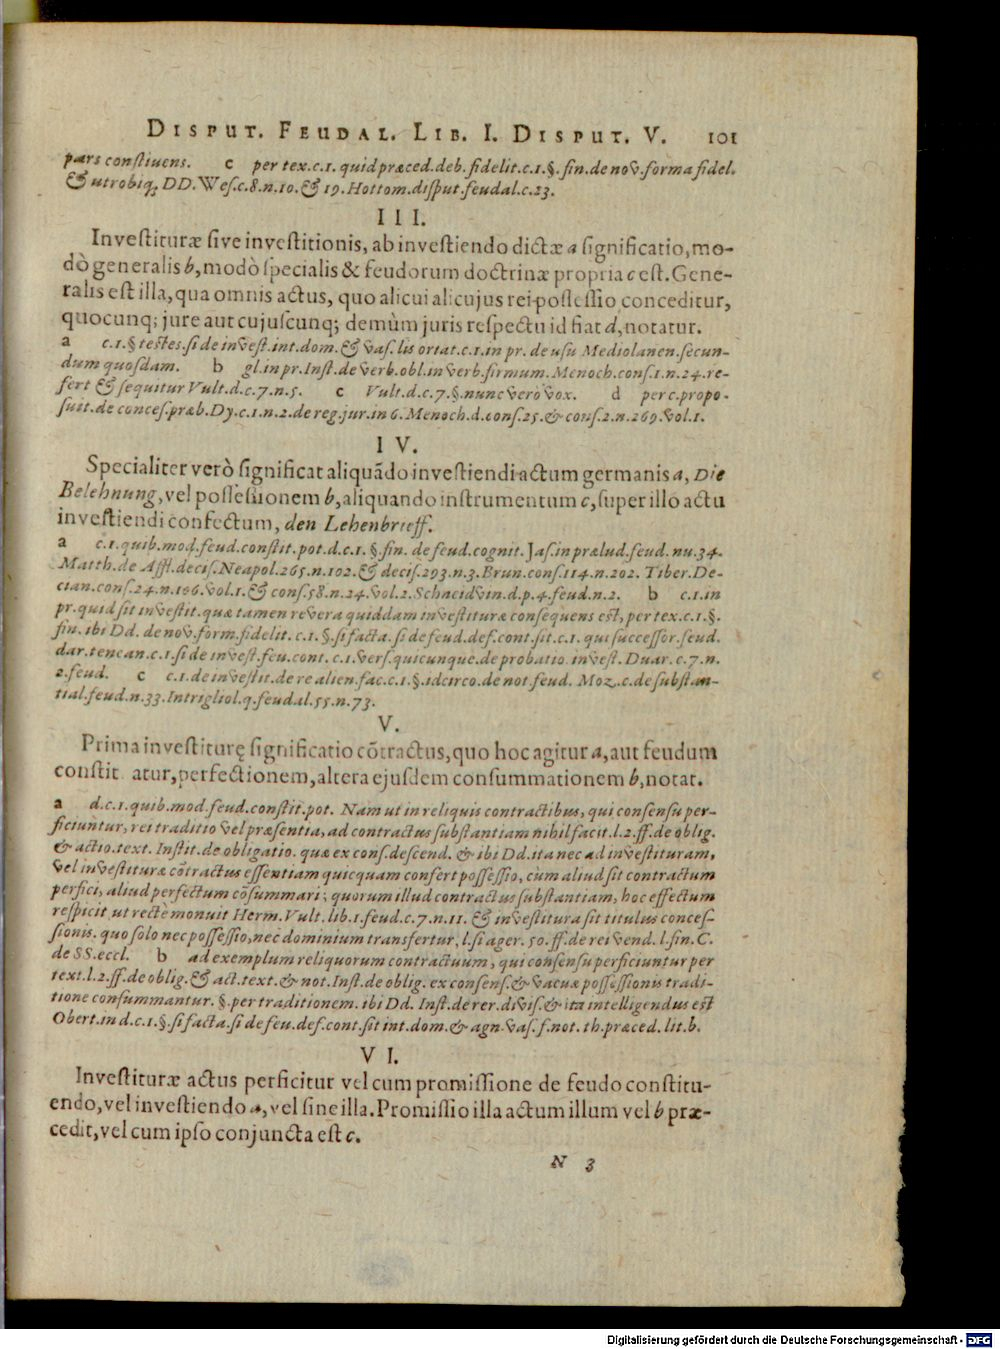 DISPUT. FEUDAL. LIB. I. DISPUT. V. 101
pars constiuens. c per tex.c.1. quid præced.deb.fidelit.c.1.§.fin.de nov.forma fidel.
& utrobiq; DD.Wes.c.8.n.10.& 19.Hottom.disput.feudal.c.23.
III.
Investituræ sive investitionis, ab investiendo dictæ a significatio, mo-
dò generalis b, modò specialis & feudorum doctrinæ propria c est. Gene-
ralis est illa, qua omnis actus, quo alicui alicujus rei possessio conceditur,
quocunq; jure aut cujuscunq; demùm juris respectu id fiat d, notatur.
a c.1.§ testes.si de invest.int.dom.& vas.lis ortat.c.1.in pr. de usu Mediolanen.secun-
dum quosdam. b gl.in pr.Inst.de verb.obl.in verb.firmum.Menoch.cons.1.n.24.re-
fert & sequitur Vult.d.c.7.n.5. c Vult.d.c.7.§.nunc verò vox. d per c.propo-
suit.de conces.præb.Dy.c.1.n.2.de reg.jur.in 6.Menoch.d.cons.25.& cons.2.n.269.vol.1.
IV.
Specialiter verò significat aliquãdo investiendi actum germanis a, Die
Belehnung, vel possessionem b, aliquando instrumentum c, super illo actu
investiendi confectum, den Lehenbrieff.
a c.1.quib.mod.feud.constit.pot.d.c.1.§.fin. de feud.cognit.Jas.in prælud.feud.nu.34.
Matth.de Affl.decis.Neapol.265.n.102.& decis.293.n.3.Brun.cons.114.n.202. Tiber.De-
cian.cons.24.n.166.vol.1.& cons.58.n.24.vol.2.Schacidvin.d.p.4.feud.n.2. b c.1.in
pr.quid sit investit.quæ tamen revera quiddam investituræ consequens est, per tex.c.1.§.
fin.ibi Dd. de nov.form.fidelit.c.1.§.si facta.si de feud.def.cont.sit.c.1. qui successor.feud.
dar.tenean.c.1.si de invest.feu.cont. c.1.vers.quicunque.de probatio invest.Duar.c.7.n.
2.feud. c c.1.de investit.de re alien.fac.c.1.§.idcirco.de not.feud. Moz.c.de substan-
tial.feud.n.33.Intrigliol.q.feudal.55.n.73.
V.
Prima investiturę significatio cõtractus, quo hoc agitur a, aut feudum
constit atur, perfectionem, altera ejusdem consummationem b, notat.
a d.c.1.quib.mod.feud.constit.pot. Nam ut in reliquis contractibus, qui consensu per-
ficiuntur, rei traditio vel præsentia, ad contractus substantiam nihil facit.l.2.ff.de oblig.
& actio.text. Instit.de obligatio. quæ ex cons.descend. & ibi Dd.ita nec ad investituram,
vel investituræ cõtractus essentiam quicquam confert possessio, cùm aliud sit contractum
perfici, aliud perfectum cõsummari; quorum illud contractus substantiam, hoc effectum
respicit, ut rectè monuit Herm. Vult. lib.1.feud.c.7.n.11. & investitura sit titulus conces-
sionis. quo solo nec possessio, nec dominium transfertur, l.si ager. 50.ff.de rei vend. l.fin.C.
de SS.eccl. b ad exemplum reliquorum contractuum, qui consensu perficiuntur per
text.l.2.ff.de oblig.& act.text.& not.Inst.de oblig. ex consens.& vacuæ possessionis tradi-
tione consummantur. §.per traditionem.ibi Dd. Inst.de rer.divis.& ita intelligendus est
Obert.in d.c.1.§.si facta.si de feu.def.cont.sit int.dom.& agn.vas.f.not. th.præced.lit.b.
VI.
Investituræ actus perficitur vel cum promissione de feudo constitu-
endo, vel investiendo a, vel sine illa. Promissio illa actum illum vel b præ-
cedit, vel cum ipso conjuncta est c.
N 3
Digitalisierung gefördert durch die Deutsche Forschungsgemeinschaft - DFG